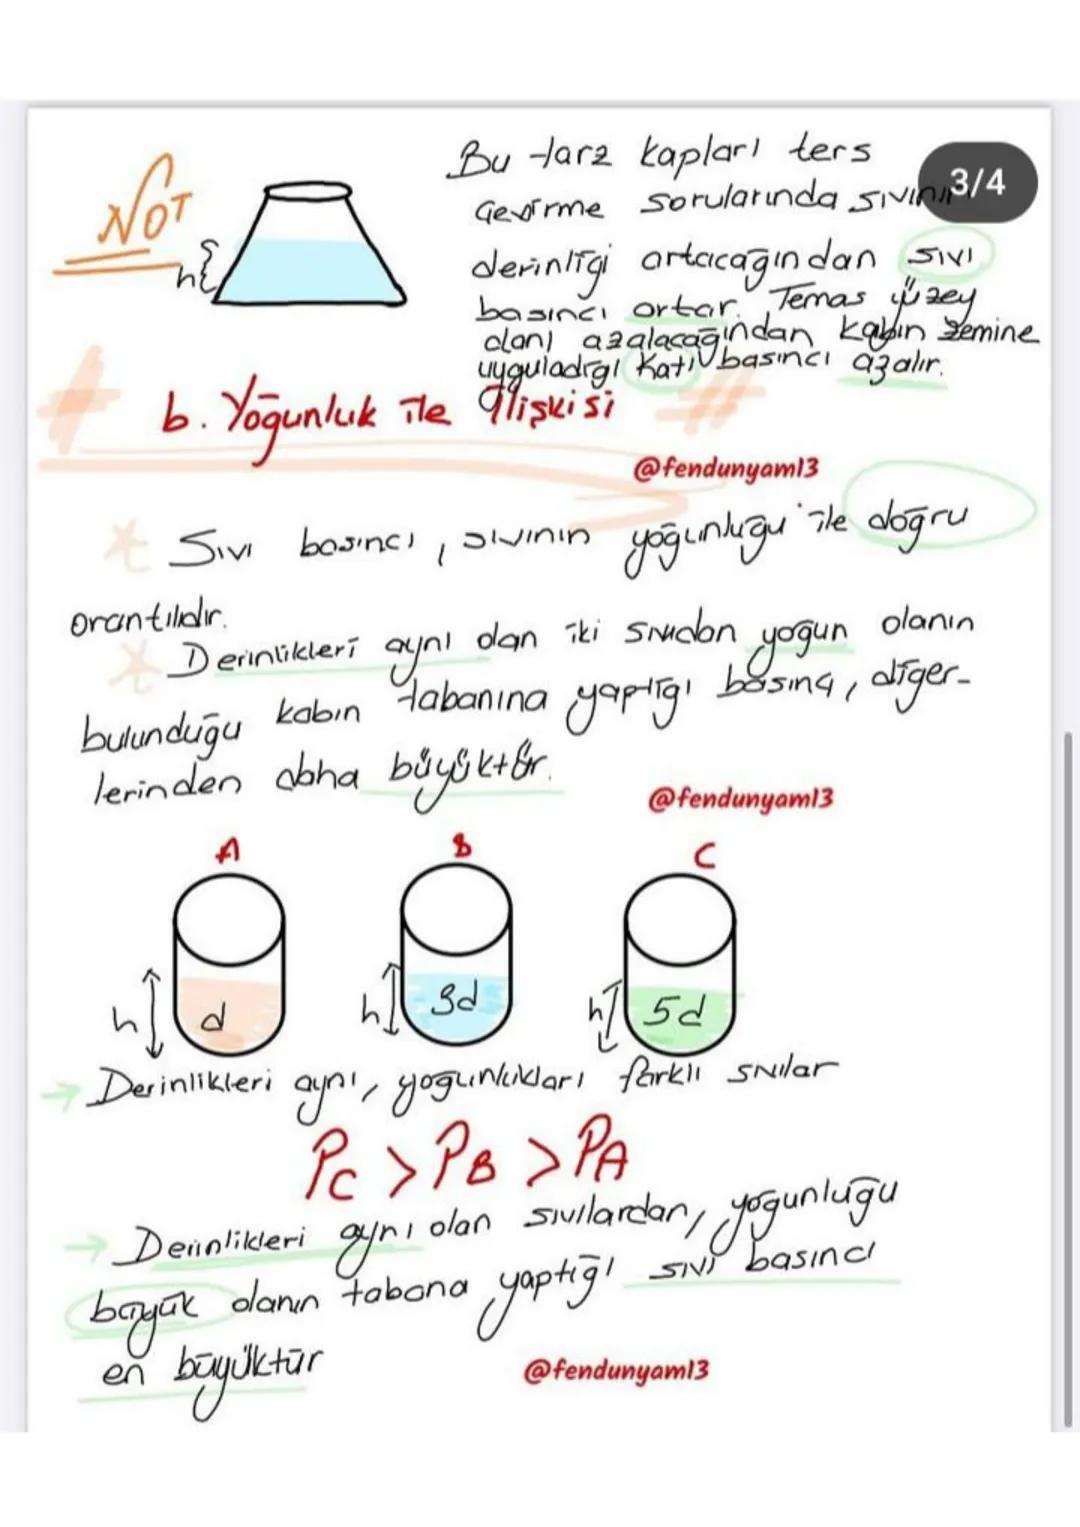 NOT
Bu tarz kapları ters
3/4
çevirme sorularında sıvının
h
derinliği artacağından sıvı
basıncı artar. Temas yüzey
alanı azalacağından kabın zemine
uyguladığı katı basıncı azalır.
b. Yoğunluk ile İlişkisi
@fendunyam13
Sıvı basıncı, sıvının yoğunluğu ile doğru
orantılıdır.
Derinlikleri aynı olan iki sıvıdan yoğun olanın
bulunduğu kabın tabanına yaptığı basınç, diğer-
lerinden daha büyüktür.
@fendunyam13
A B C
h d h 3d h 5d
Derinlikleri aynı, yoğunlukları farklı sıvılar
PC > PB > PA
Derinlikleri aynı olan sıvılardan, yoğunluğu
büyük olanın tabana yaptığı sıvı basıncı
en büyüktür
@fendunyam13